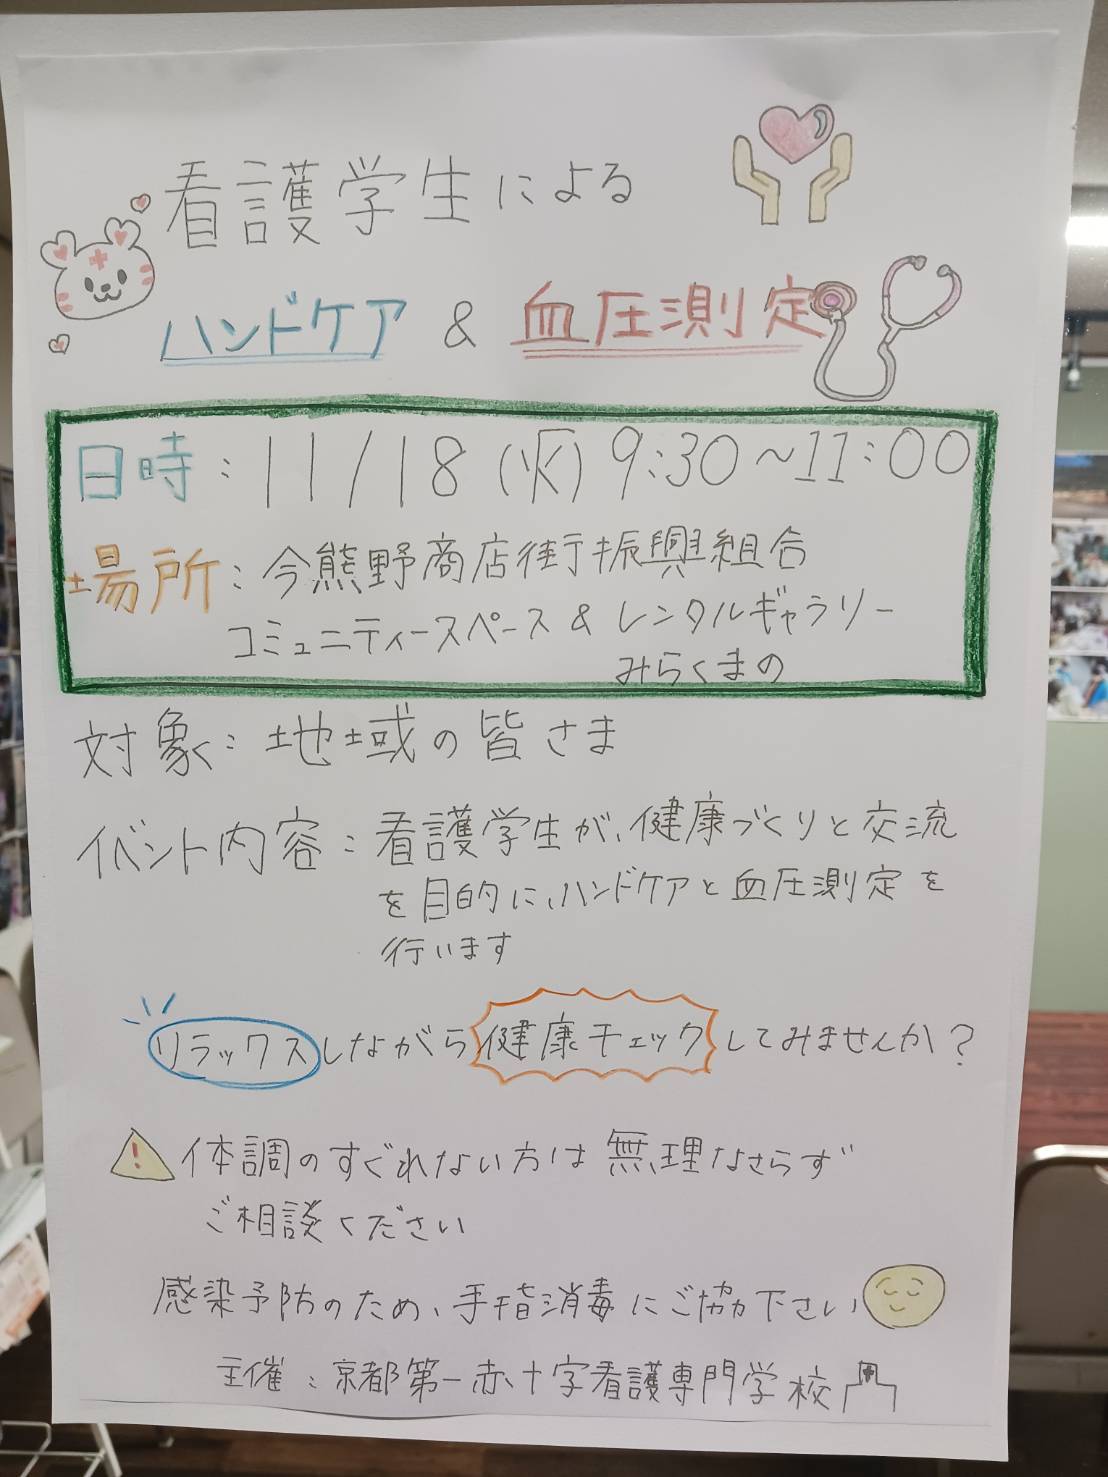 看護学生による
ハンドケア & 血圧測定
日時：11/18(火) 9:30～11:00
場所：今熊野商店街振興組合
コミュニティースペース & レンタルギャラリー
みらくまの
対象：地域の皆さま
イベント内容：看護学生が、健康づくりと交流
を目的に、ハンドケアと血圧測定を
行います
リラックスしながら健康チェックしてみませんか？
体調のすぐれない方は無理なさらず
ご相談ください
感染予防のため、手指消毒にご協力下さい
主催：京都第一赤十字看護専門学校